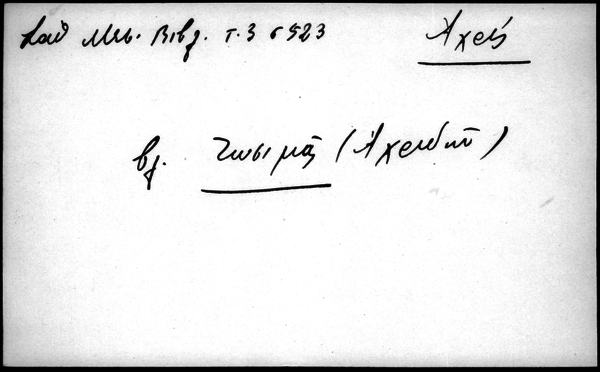 Σαθ Μεσ. Βιβλ. τ. 3 σ 523
Ἀχειᾶς
βλ. Ζωσιμᾶς (Ἀχειδοῦ)